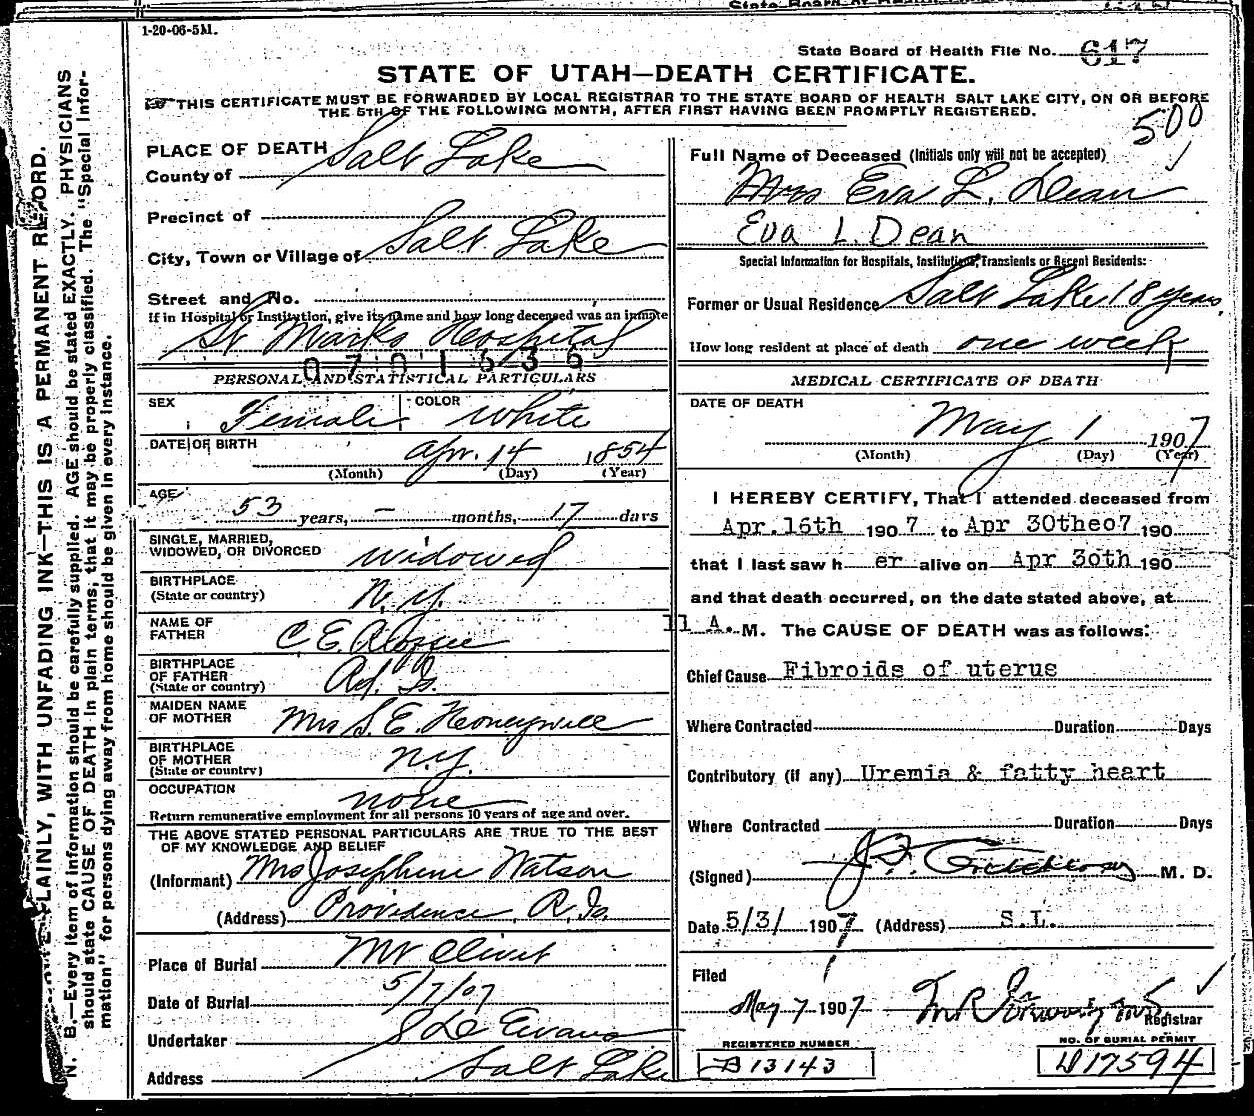 1-20-06-5M.
State Board of Health File No. 617
STATE OF UTAH—DEATH CERTIFICATE.
THIS CERTIFICATE MUST BE FORWARDED BY LOCAL REGISTRAR TO THE STATE BOARD OF HEALTH SALT LAKE CITY, ON OR BEFORE
THE 5TH OF THE FOLLOWING MONTH, AFTER FIRST HAVING BEEN PROMPTLY REGISTERED.
500
N. B.—Every item of information should be carefully supplied. AGE should be stated EXACTLY. PHYSICIANS
should state CAUSE OF DEATH in plain terms, that it may be properly classified. The "Special Infor-
mation" for persons dying away from home should be given in every instance.
PLAINLY, WITH UNFADING INK—THIS IS A PERMANENT RECORD.
PLACE OF DEATH
County of Salt Lake
Precinct of
City, Town or Village of Salt Lake
Street and No.
If in Hospital or Institution, give its name and how long deceased was an inmate
St Marks Hospital
0701535
PERSONAL AND STATISTICAL PARTICULARS
SEX Female COLOR White
DATE OF BIRTH Apr. 14 1854
(Month) (Day) (Year)
AGE 53 years, — months, 17 days
SINGLE, MARRIED,
WIDOWED, OR DIVORCED widowed
BIRTHPLACE
(State or country) N.Y.
NAME OF
FATHER C. E.
BIRTHPLACE
OF FATHER
(State or country)
MAIDEN NAME
OF MOTHER Mrs S. E. Honeywell
BIRTHPLACE
OF MOTHER
(State or country) N.Y.
OCCUPATION none
Return remunerative employment for all persons 10 years of age and over.
THE ABOVE STATED PERSONAL PARTICULARS ARE TRUE TO THE BEST
OF MY KNOWLEDGE AND BELIEF
(Informant) Mrs Josephine Watson
(Address) Providence, R. Is.
Place of Burial Mt Olivet
Date of Burial 5/7/07
Undertaker Evans
Address Salt Lake
Full Name of Deceased (Initials only will not be accepted)
Mrs Eva L. Dean
Eva L. Dean
Special Information for Hospitals, Institutions, Transients or Recent Residents:
Former or Usual Residence Salt Lake 18 years
How long resident at place of death one week
MEDICAL CERTIFICATE OF DEATH
DATE OF DEATH
May 1 1907
(Month) (Day) (Year)
I HEREBY CERTIFY, That I attended deceased from
Apr.16th 1907 to Apr 30the07 190
that I last saw her alive on Apr 30th 190
and that death occurred, on the date stated above, at
11 A. M. The CAUSE OF DEATH was as follows:
Chief Cause Fibroids of uterus
Where Contracted Duration Days
Contributory (if any) Uremia & fatty heart
Where Contracted Duration Days
(Signed) M. D.
Date 5/3/ 1907 (Address) S.L.
Filed
May 7 1907
Registrar
REGISTERED NUMBER
B13143
NO. OF BURIAL PERMIT
D17594